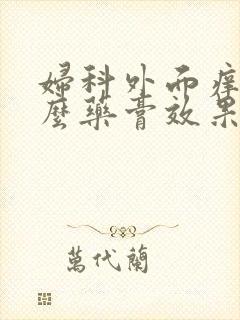 婦科外而痒
麼藥膏效果
萬代蘭